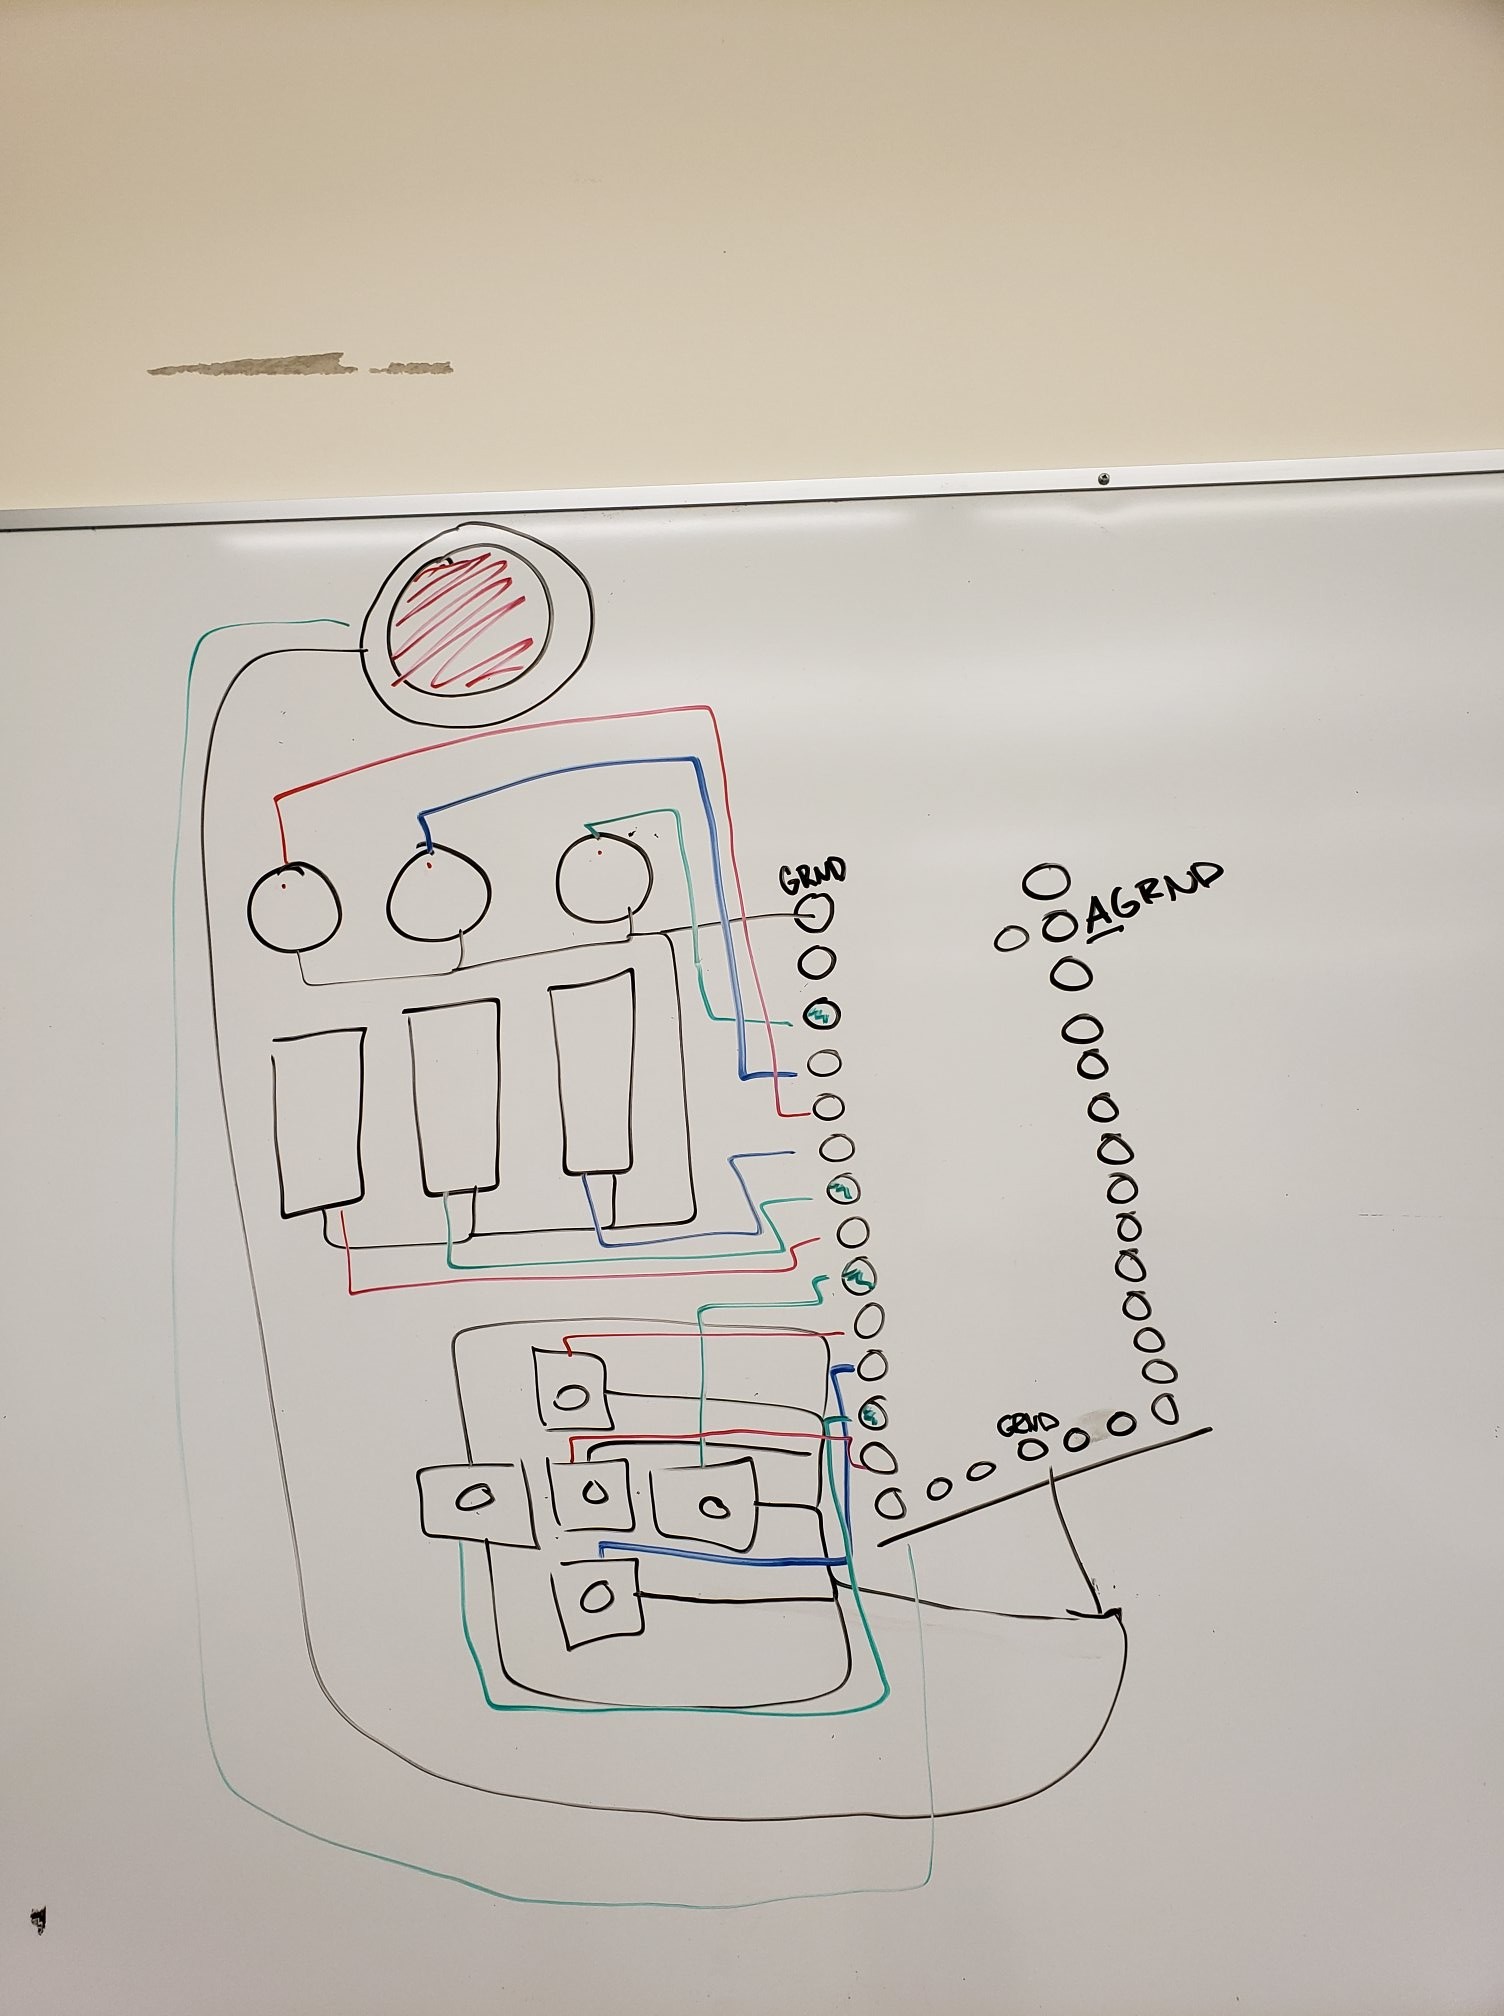 GRND
AGRND
GRND